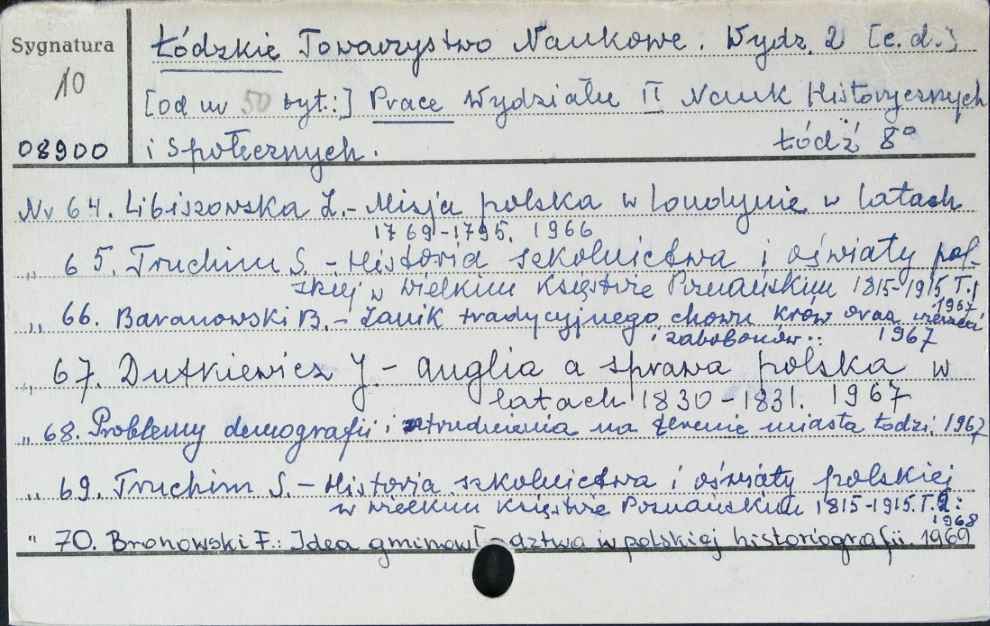 Sygnatura
10
08900
Łódzkie Towarzystwo Naukowe. Wydz. 2 [c. d.]
[od nr 50 tyt.:] Prace Wydziału II Nauk Historycznych
i Społecznych. Łódź 8°
Nr 64. Libiszowska Z.- Misja polska w Londynie w latach
1769-1795. 1966
„ 65. Truchim S. - Historia szkolnictwa i oświaty pol-
skiej w Wielkim Księstwie Poznańskim 1815-1915 T.1
1967
„ 66. Baranowski B.- Zanik tradycyjnego chowu krów oraz wierzeń
i zabobonów.: 1967
„ 67. Dutkiewicz J.- Anglia a sprawa polska w
latach 1830-1831. 1967
„ 68. Problemy demografii i zatrudnienia na terenie miasta Łodzi. 1967
„ 69. Truchim S.- Historia szkolnictwa i oświaty polskiej
w Wielkim Księstwie Poznańskim 1815-1915. T. 2:
1968
" 70. Bronowski F.: Idea gminowł - dztwa w polskiej historiografii. 1969